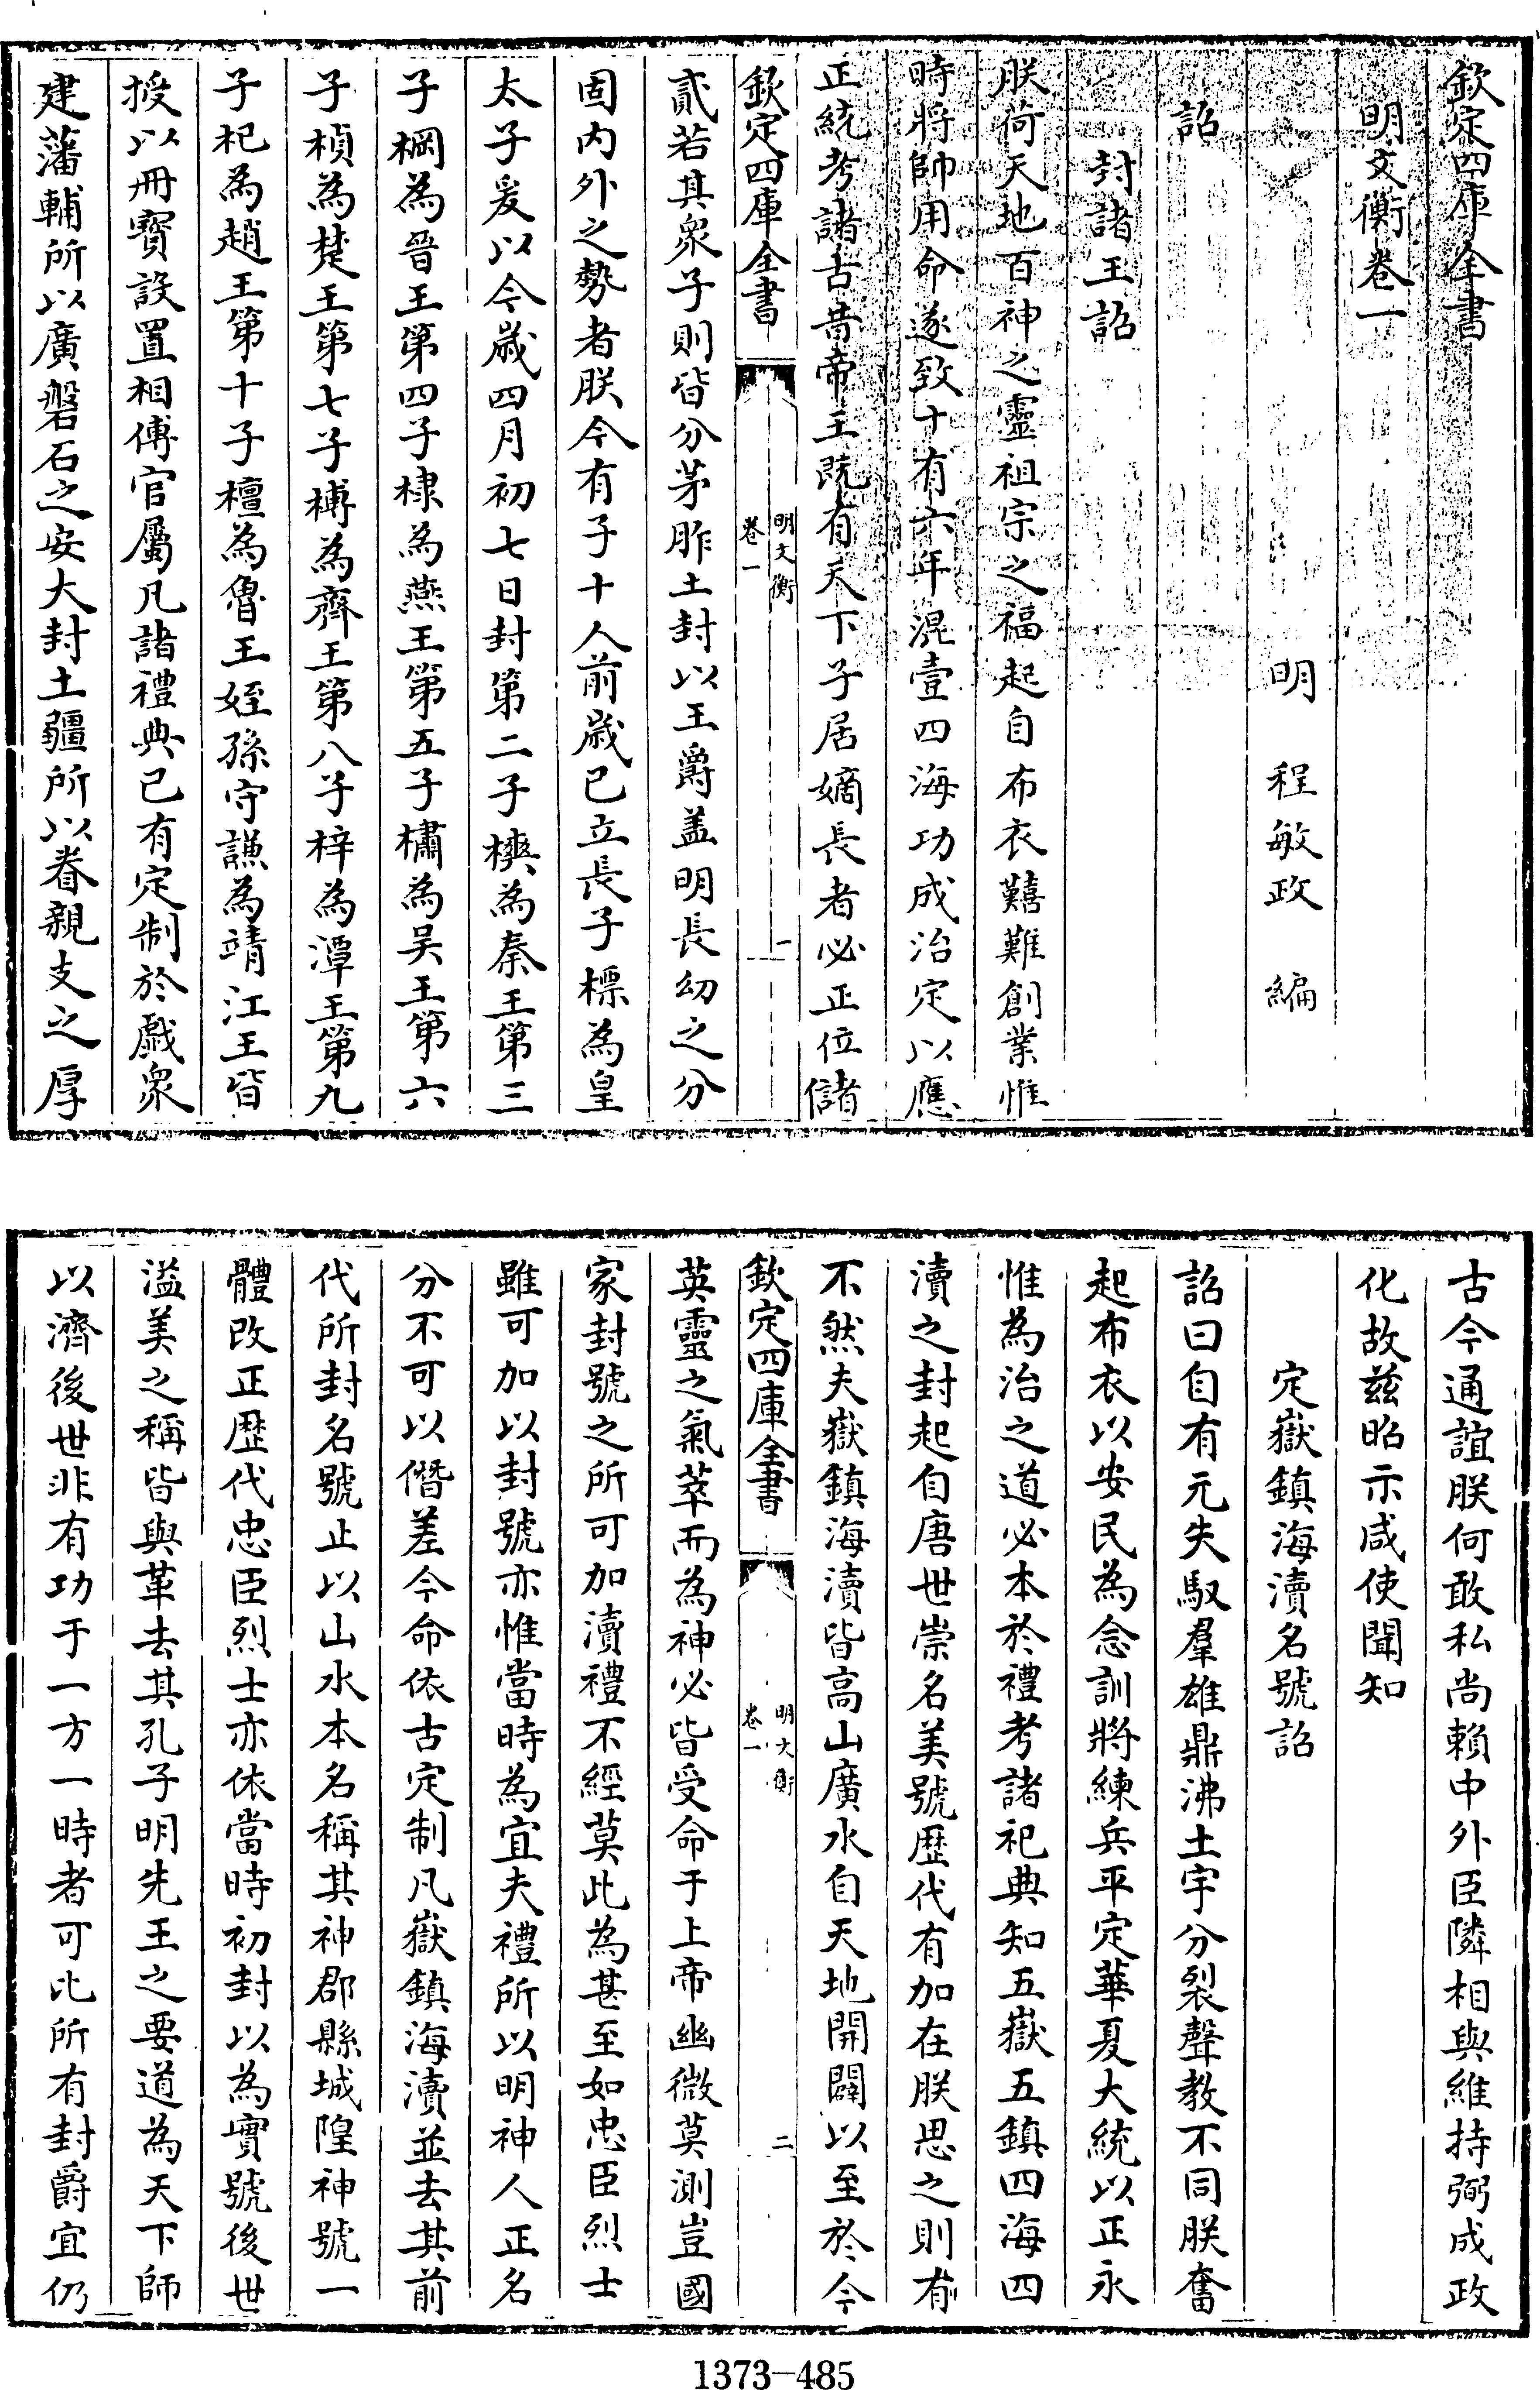 欽定四庫全書
明文衡卷一
明 程敏政 編
詔
封諸王詔
朕荷天地百神之靈祖宗之福起自布衣囏難創業惟
時將帥用命遂致十有六年混壹四海功成治定以應
正統考諸古昔帝王既有天下子居嫡長者必正位儲
欽定四庫全書
明文衡
卷一
一
貳若其衆子則皆分茅胙土封以王爵盖明長幼之分
固内外之勢者朕今有子十人前歳已立長子標為皇
太子爰以今歳四月初七日封第二子樉為秦王第三
子棡為晉王第四子棣為燕王第五子橚為吴王第六
子楨為楚王第七子榑為齊王第八子梓為潭王第九
子杞為趙王第十子檀為魯王姪孫守謙為靖江王皆
授以冊寳設置相傅官屬凡諸禮典已有定制於戲衆
建藩輔所以廣磐石之安大封土疆所以眷親支之厚
古今通誼朕何敢私尚賴中外臣隣相與維持弼成政
化故兹昭示咸使聞知
定嶽鎮海瀆名號詔
詔曰自有元失馭羣雄鼎沸土宇分裂聲教不同朕奮
起布衣以安民為念訓將練兵平定華夏大統以正永
惟為治之道必本於禮考諸祀典知五嶽五鎮四海四
瀆之封起自唐世崇名美號歴代有加在朕思之則有
不然夫嶽鎮海瀆皆高山廣水自天地開闢以至於今
欽定四庫全書
明文衡
卷一
二
英靈之氣萃而為神必皆受命于上帝幽微莫測豈國
家封號之所可加瀆禮不經莫此為甚至如忠臣烈士
雖可加以封號亦惟當時為宜夫禮所以明神人正名
分不可以僭差今命依古定制凡嶽鎮海瀆並去其前
代所封名號止以山水本名稱其神郡縣城隍神號一
體改正歴代忠臣烈士亦依當時初封以為實號後世
溢美之稱皆與革去其孔子明先王之要道為天下師
以濟後世非有功于一方一時者可比所有封爵宜仍
1373-485